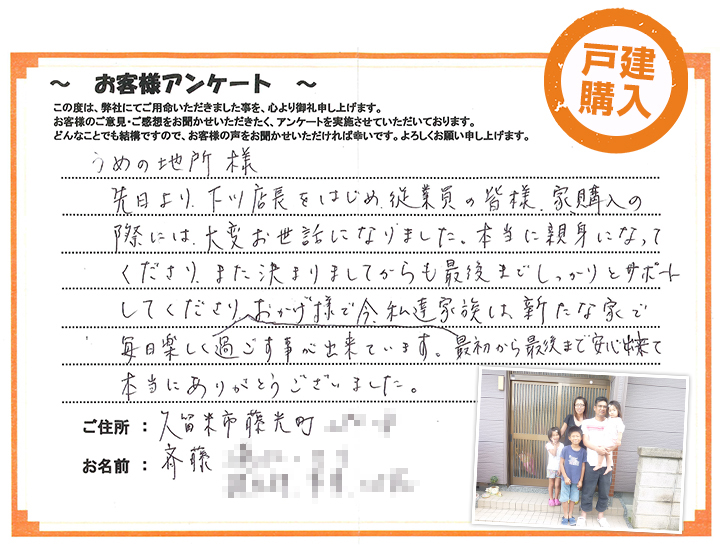 戸建
購入
～ お客様アンケート ～
この度は、弊社にてご用命いただきました事を、心より御礼申し上げます。
お客様のご意見・ご感想をお聞かせいただきたく、アンケートを実施させていただいております。
どんなことでも結構ですので、お客様の声をお聞かせいただければ幸いです。よろしくお願い申し上げます。
うめの地所 様
先日より、下ツ店長をはじめ、従業員の皆様、家購入の
際には、大変お世話になりました。本当に親身になって
くださり、また決まりましてからも最後までしっかりとサポート
してくださり、おかげ様で今、私達家族は、新たな家で
毎日楽しく過ごす事が出来ています。最初から最後まで安心出来て
本当にありがとうございました。
ご住所 ： 久留米市藤光町
お名前 ： 斉藤